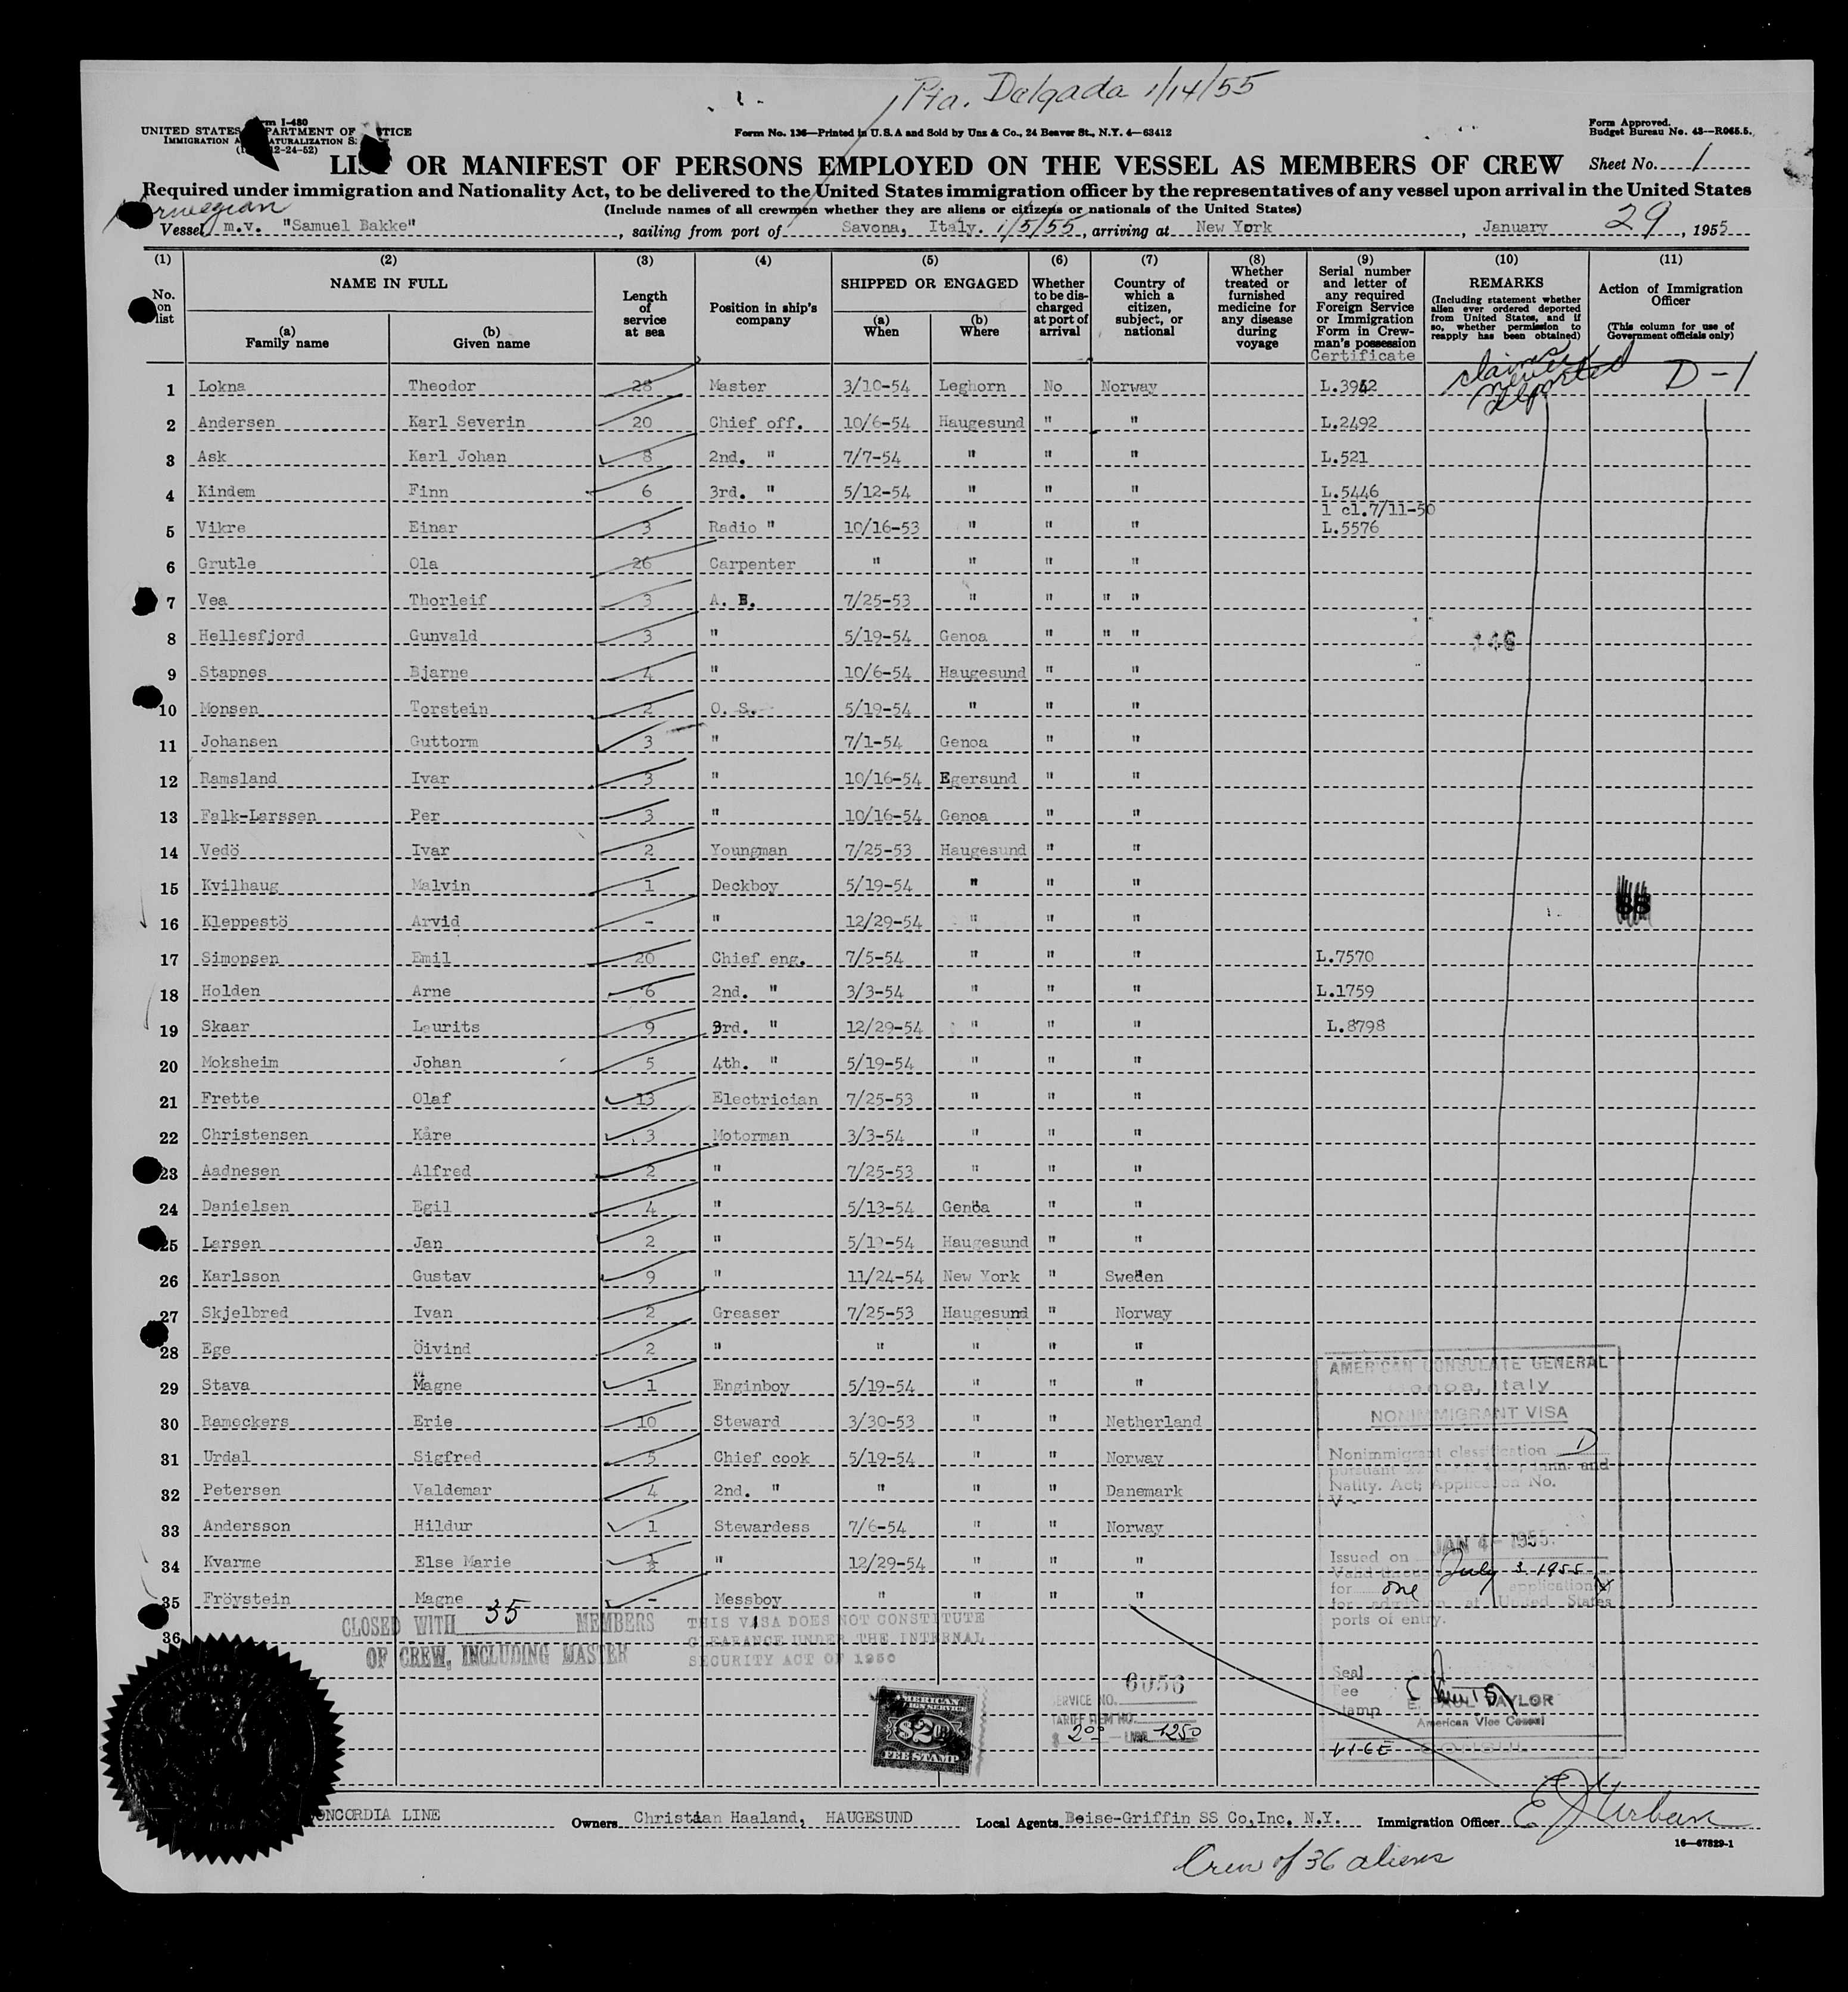 Pta. Delgada 1/14/55
Form I-480
UNITED STATES DEPARTMENT OF JUSTICE
IMMIGRATION AND NATURALIZATION S.
12-24-52)
Form No. 136—Printed in U.S.A and Sold by Unz & Co., 24 Beaver St., N.Y. 4—63412
Form Approved.
Budget Bureau No. 43—R065.5.
LIST OR MANIFEST OF PERSONS EMPLOYED ON THE VESSEL AS MEMBERS OF CREW
Sheet No. 1
Required under immigration and Nationality Act, to be delivered to the United States immigration officer by the representatives of any vessel upon arrival in the United States
(Include names of all crewmen whether they are aliens or citizens or nationals of the United States)
Norwegian
Vessel m.v. "Samuel Bakke", sailing from port of Savona, Italy. 1/5/55, arriving at New York, January 29, 1955
(1) (2) (3) (4) (5) (6) (7) (8) (9) (10) (11)
No. on list
NAME IN FULL
(a) Family name
(b) Given name
Length of service at sea
Position in ship's company
SHIPPED OR ENGAGED
(a) When
(b) Where
Whether to be discharged at port of arrival
Country of which a citizen, subject, or national
Whether treated or furnished medicine for any disease during voyage
Serial number and letter of any required Foreign Service or Immigration Form in Crewman's possession
Certificate
REMARKS
(Including statement whether alien ever ordered deported from United States, and if so, whether permission to reapply has been obtained)
Action of Immigration Officer
(This column for use of Government officials only)
claims never deported
1 Lokna Theodor 28 Master 3/10-54 Leghorn No Norway L.3942 D-1
2 Andersen Karl Severin 20 Chief off. 10/6-54 Haugesund " " L.2492
3 Ask Karl Johan 8 2nd. " 7/7-54 " " " L.521
4 Kindem Finn 6 3rd. " 5/12-54 " " " L.5446
1 cl.7/11-50
5 Vikre Einar 3 Radio " 10/16-53 " " " L.5576
6 Grutle Ola 26 Carpenter " " " "
7 Vea Thorleif 3 A. B. 7/25-53 " " " "
8 Hellesfjord Gunvald 3 " 5/19-54 Genoa " " "
9 Stapnes Bjarne 4 " 10/6-54 Haugesund " "
10 Monsen Torstein 2 O. S. 5/19-54 " " "
11 Johansen Guttorm 3 " 7/1-54 Genoa " "
12 Ramsland Ivar 3 " 10/16-54 Egersund " "
13 Falk-Larssen Per 3 " 10/16-54 Genoa " "
14 Vedö Ivar 2 Youngman 7/25-53 Haugesund " "
15 Kvilhaug Malvin 1 Deckboy 5/19-54 " " "
16 Kleppestö Arvid - " 12/29-54 " " "
17 Simonsen Emil 20 Chief eng. 7/5-54 " " " L.7570
18 Holden Arne 6 2nd. " 3/3-54 " " " L.1759
19 Skaar Laurits 9 3rd. " 12/29-54 " " " L.8798
20 Moksheim Johan 5 4th. " 5/19-54 " " "
21 Frette Olaf 13 Electrician 7/25-53 " " "
22 Christensen Kåre 3 Motorman 3/3-54 " " "
23 Aadnesen Alfred 2 " 7/25-53 " " "
24 Danielsen Egil 4 " 5/13-54 Genoa " "
25 Larsen Jan 2 " 5/19-54 Haugesund " "
26 Karlsson Gustav 9 " 11/24-54 New York " Sweden
27 Skjelbred Ivan 2 Greaser 7/25-53 Haugesund " Norway
28 Ege Öivind 2 " " " " "
29 Stava Magne 1 Enginboy 5/19-54 " " "
30 Rameckers Erie 10 Steward 3/30-53 " " Netherland
31 Urdal Sigfred 5 Chief cook 5/19-54 " " Norway
32 Petersen Valdemar 4 2nd. " " " " Danemark
33 Andersson Hildur 1 Stewardess 7/6-54 " " Norway
34 Kvarme Else Marie ½ " 12/29-54 " " "
35 Fröystein Magne - Messboy " " " "
36
CLOSED WITH 35 MEMBERS
OF CREW, INCLUDING MASTER
THIS VISA DOES NOT CONSTITUTE
CLEARANCE UNDER THE INTERNAL
SECURITY ACT OF 1950
AMERICAN CONSULATE GENERAL
Genoa, Italy
NONIMMIGRANT VISA
Nonimmigrant classification D
Natlty. Act; Application No.
V -
JAN 4 - 1955
Issued on
Valid through July 3 1955
for one application
for admission at United States
ports of entry.
Seal
Fee
Stamp
E. PAUL TAYLOR
American Vice Consul
VICE CONSUL
AMERICAN
FOREIGN SERVICE
$2
FEE STAMP
SERVICE NO. 6056
TARIFF ITEM NO.
$ 2.00 — LIRE 1250
CONCORDIA LINE
Owners Christian Haaland, HAUGESUND
Local Agents Boise-Griffin SS Co,Inc. N.Y.
Immigration Officer E J Urban
16—67829-1
Crew of 36 aliens